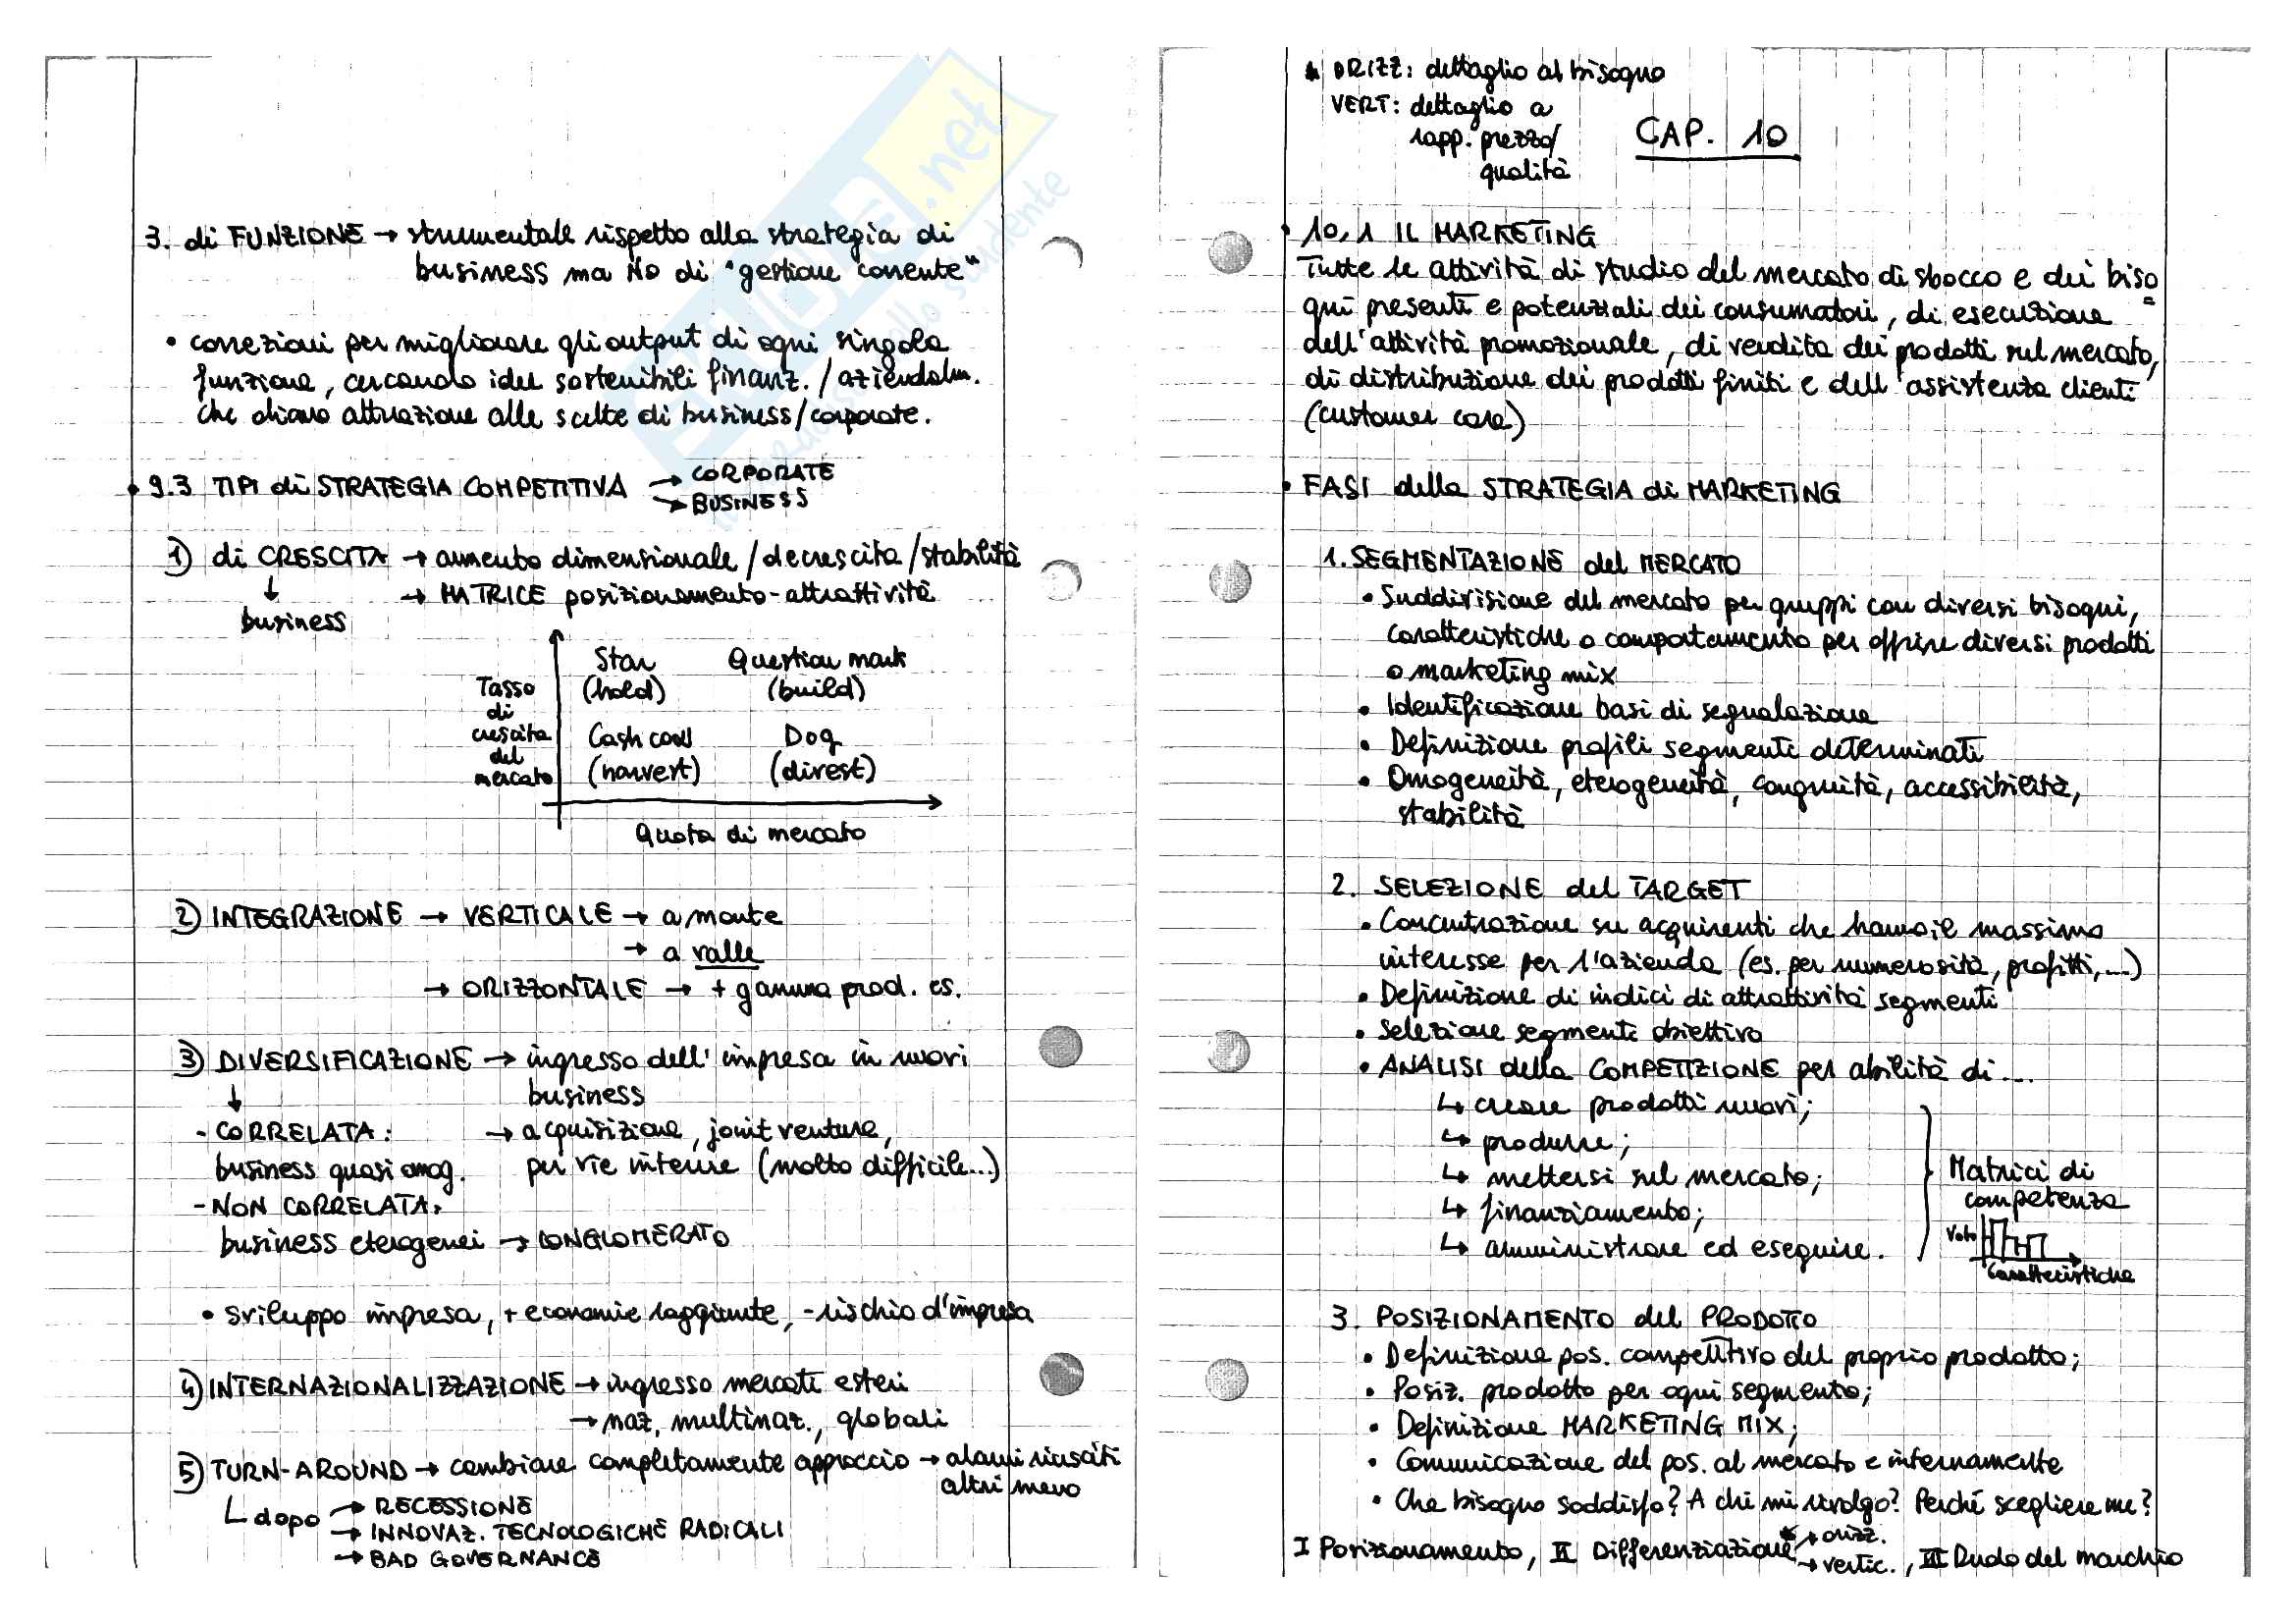 3. di FUNZIONE → strumentale rispetto alla strategia di
business ma NO di "gestione corrente"
• correzioni per migliorare gli output di ogni singola
funzione, cercando idee sostenibili finanz./aziendalm.
che diano attuazione alle scelte di business/corporate.
• 9.3 TIPI di STRATEGIA COMPETITIVA → CORPORATE
→ BUSINESS
1) di CRESCITA → aumento dimensionale/decrescita/stabilità
↓ → MATRICE posizionamento-attrattività
business
Star Question mark
(hold) (build)
Tasso
di
crescita
del
mercato
Cash cow Dog
(harvest) (divest)
Quota di mercato
2) INTEGRAZIONE → VERTICALE → a monte
→ a valle
→ ORIZZONTALE → + gamma prod. es.
3) DIVERSIFICAZIONE → ingresso dell'impresa in nuovi
↓ business
- CORRELATA: → acquisizione, joint venture,
business quasi omog. per vie interne (molto difficile...)
- NON CORRELATA:
business eterogenei → CONGLOMERATO
• sviluppo impresa, + economie raggiunte, - rischio d'impresa
4) INTERNAZIONALIZZAZIONE → ingresso mercati esteri
→ naz, multinaz., globali
5) TURN-AROUND → cambiare completamente approccio → alcuni riusciti
altri meno
↳ dopo → RECESSIONE
→ INNOVAZ. TECNOLOGICHE RADICALI
→ BAD GOVERNANCE
* ORIZZ: dettaglio al bisogno
VERT: dettaglio a
rapp. prezzo/
qualità
CAP. 10
• 10.1 IL MARKETING
Tutte le attività di studio del mercato di sbocco e dei biso
gni presenti e potenziali dei consumatori, di esecuzione
dell'attività promozionale, di vendita dei prodotti sul mercato,
di distribuzione dei prodotti finiti e dell'assistenza clienti
(customer care)
• FASI della STRATEGIA di MARKETING
1. SEGMENTAZIONE del MERCATO
• Suddivisione del mercato per gruppi con diversi bisogni,
caratteristiche o comportamento per offrire diversi prodotti
o marketing mix
• Identificazione basi di segnalazione
• Definizione profili segmenti determinati
• Omogeneità, eterogeneità, congruità, accessibilità,
stabilità
2. SELEZIONE del TARGET
• Concentrazione su acquirenti che hanno il massimo
interesse per l'azienda (es. per numerosità, profitti,...)
• Definizione di indici di attrattività segmenti
• Selezione segmenti obiettivo
• ANALISI della COMPETIZIONE per abilità di...
↳ creare prodotti nuovi;
↳ produrre;
↳ mettersi sul mercato;
↳ finanziamento;
↳ amministrare ed eseguire.
Matrici di
competenza
Voto
Caratteristiche
3. POSIZIONAMENTO del PRODOTTO
• Definizione pos. competitivo del proprio prodotto;
• Posiz. prodotto per ogni segmento;
• Definizione MARKETING MIX;
• Comunicazione del pos. al mercato e internamente
• Che bisogno soddisfo? A chi mi rivolgo? Perché scegliere me?
I Posizionamento, II Differenziazione* → orizz.
→ vertic., III Ruolo del marchio